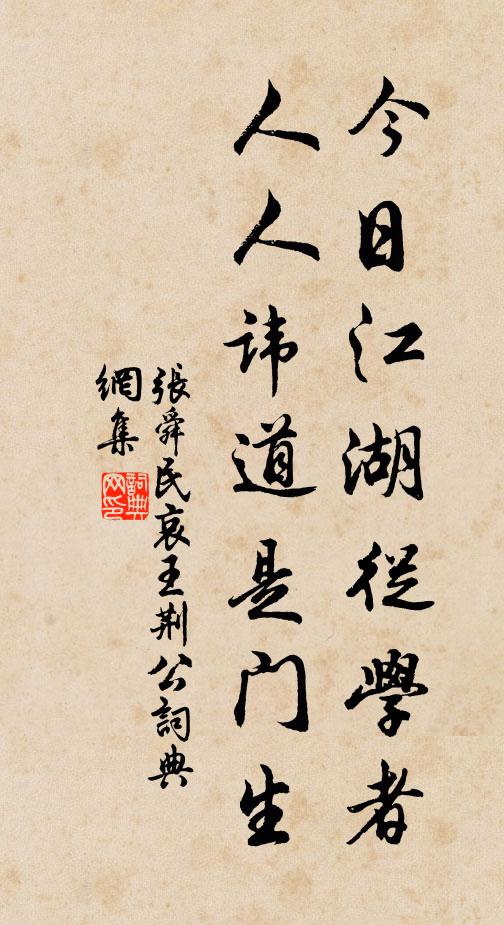 今日江湖從學者
人人諱道是門生
張舜民哀王荊公詞典
網集
詞典網印